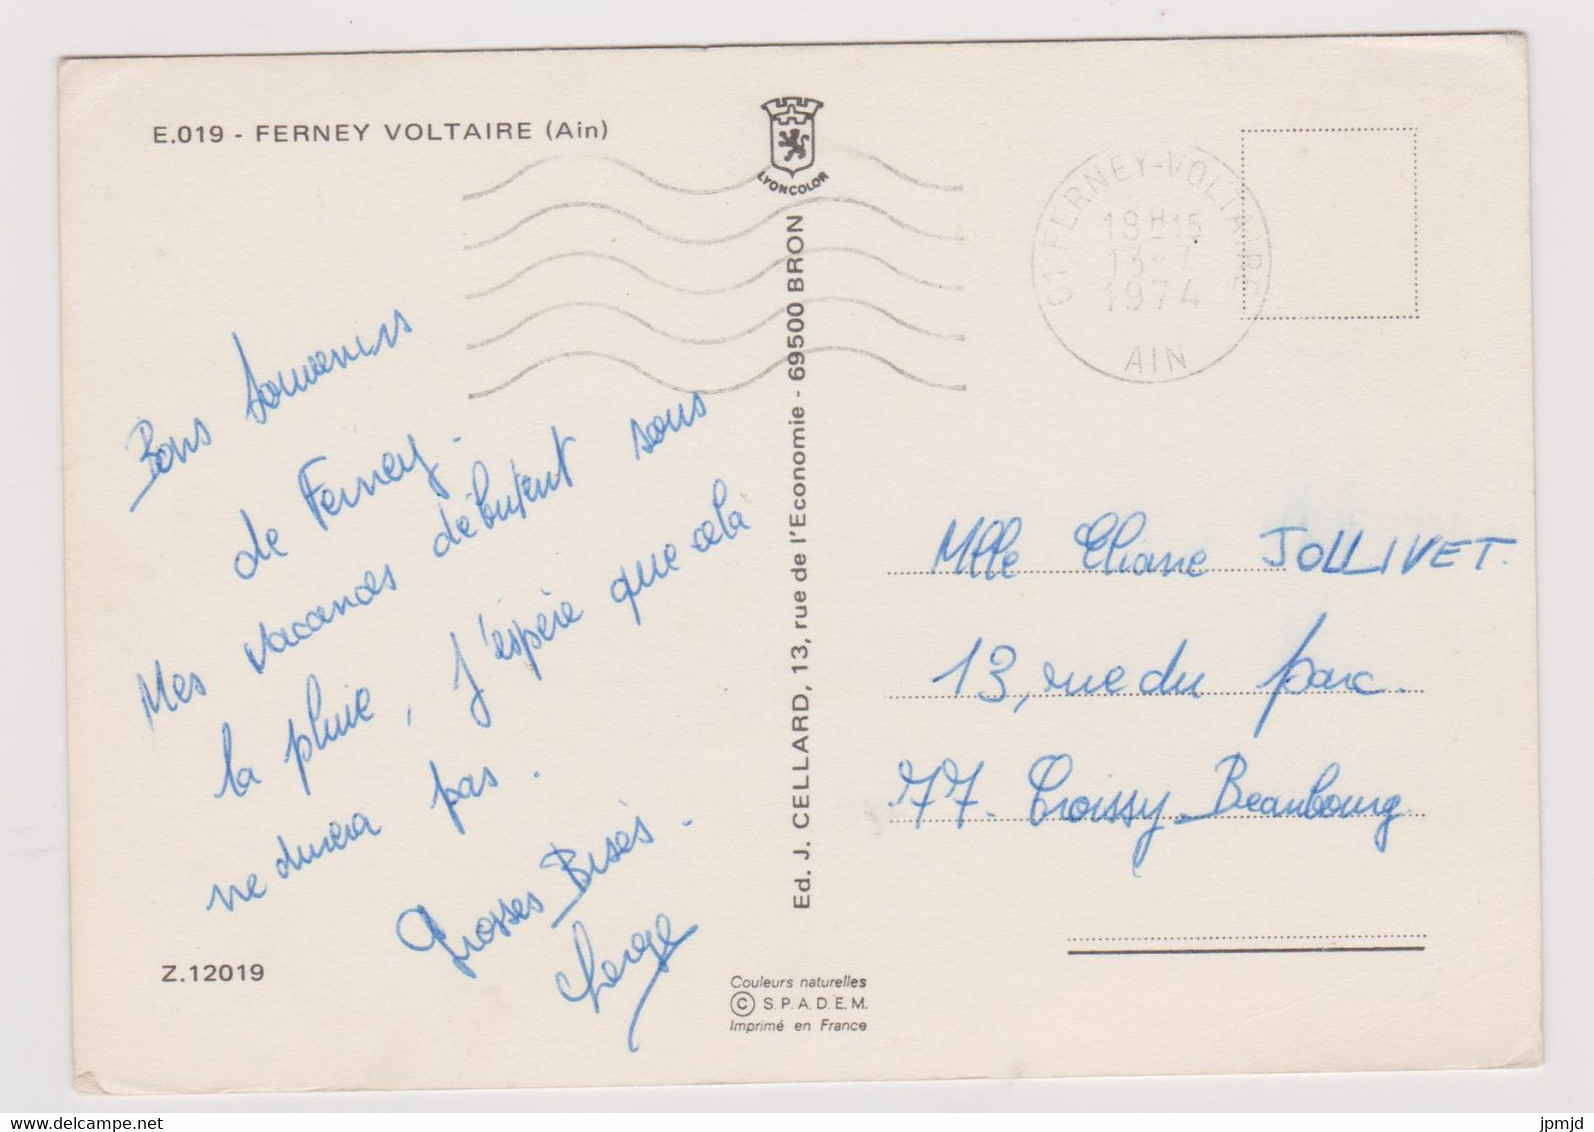 E.019 - FERNEY VOLTAIRE (Ain)
LYONCOLOR
01 FERNEY-VOLTAIRE
18H15
13-7
1974
AIN
Bons Souvenirs
de Ferney.
Mes vacances débutent sous
la pluie, j'espère que cela
ne durera pas.
Grosses Bises.
Ed. J. CELLARD, 13, rue de l'Economie - 69500 BRON
Mlle Eliane JOLLIVET.
13, rue du parc.
77. Croissy-Beaubourg.
Z.12019
Couleurs naturelles
© S.P.A.D.E.M.
Imprimé en France
delcampe.net
jpmjd